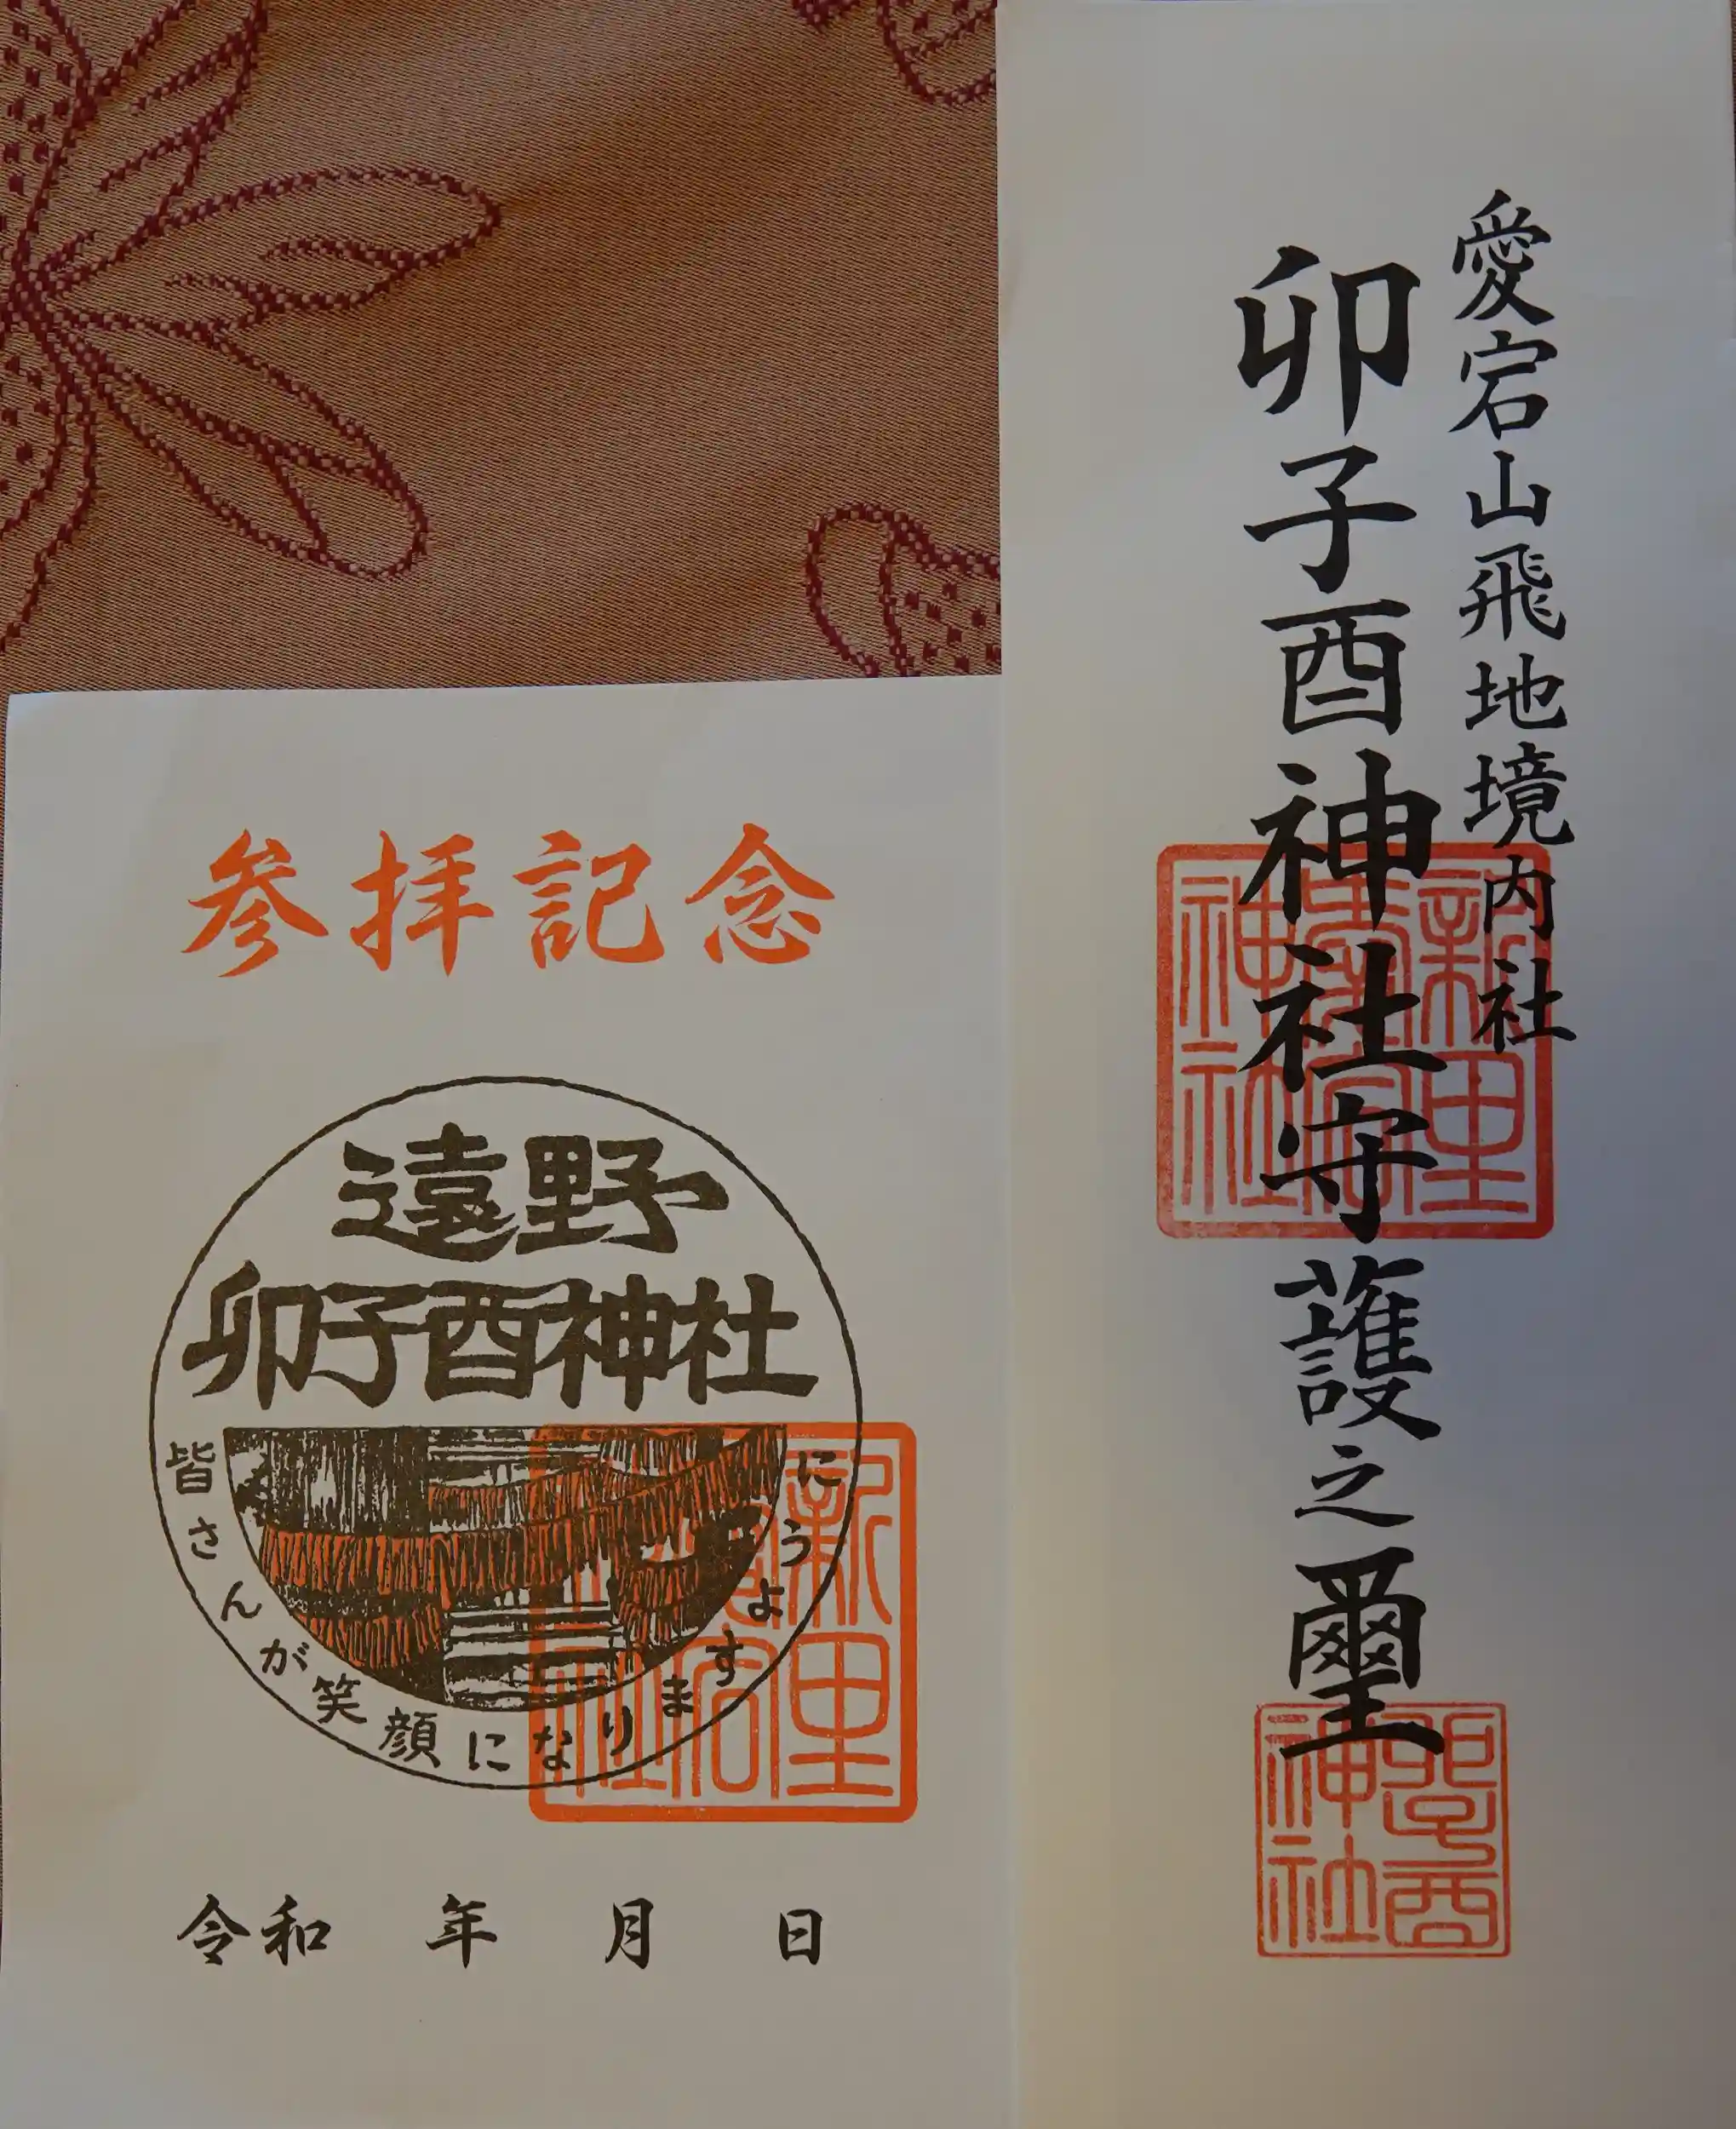 愛宕山飛地境内社
卯子酉神社守護之璽
新里
愛宕
神社
卯子酉
神社
参拝記念
遠野
卯子酉神社
皆さんが笑顔になりますように
新里
愛宕
神社
令和 年 月 日